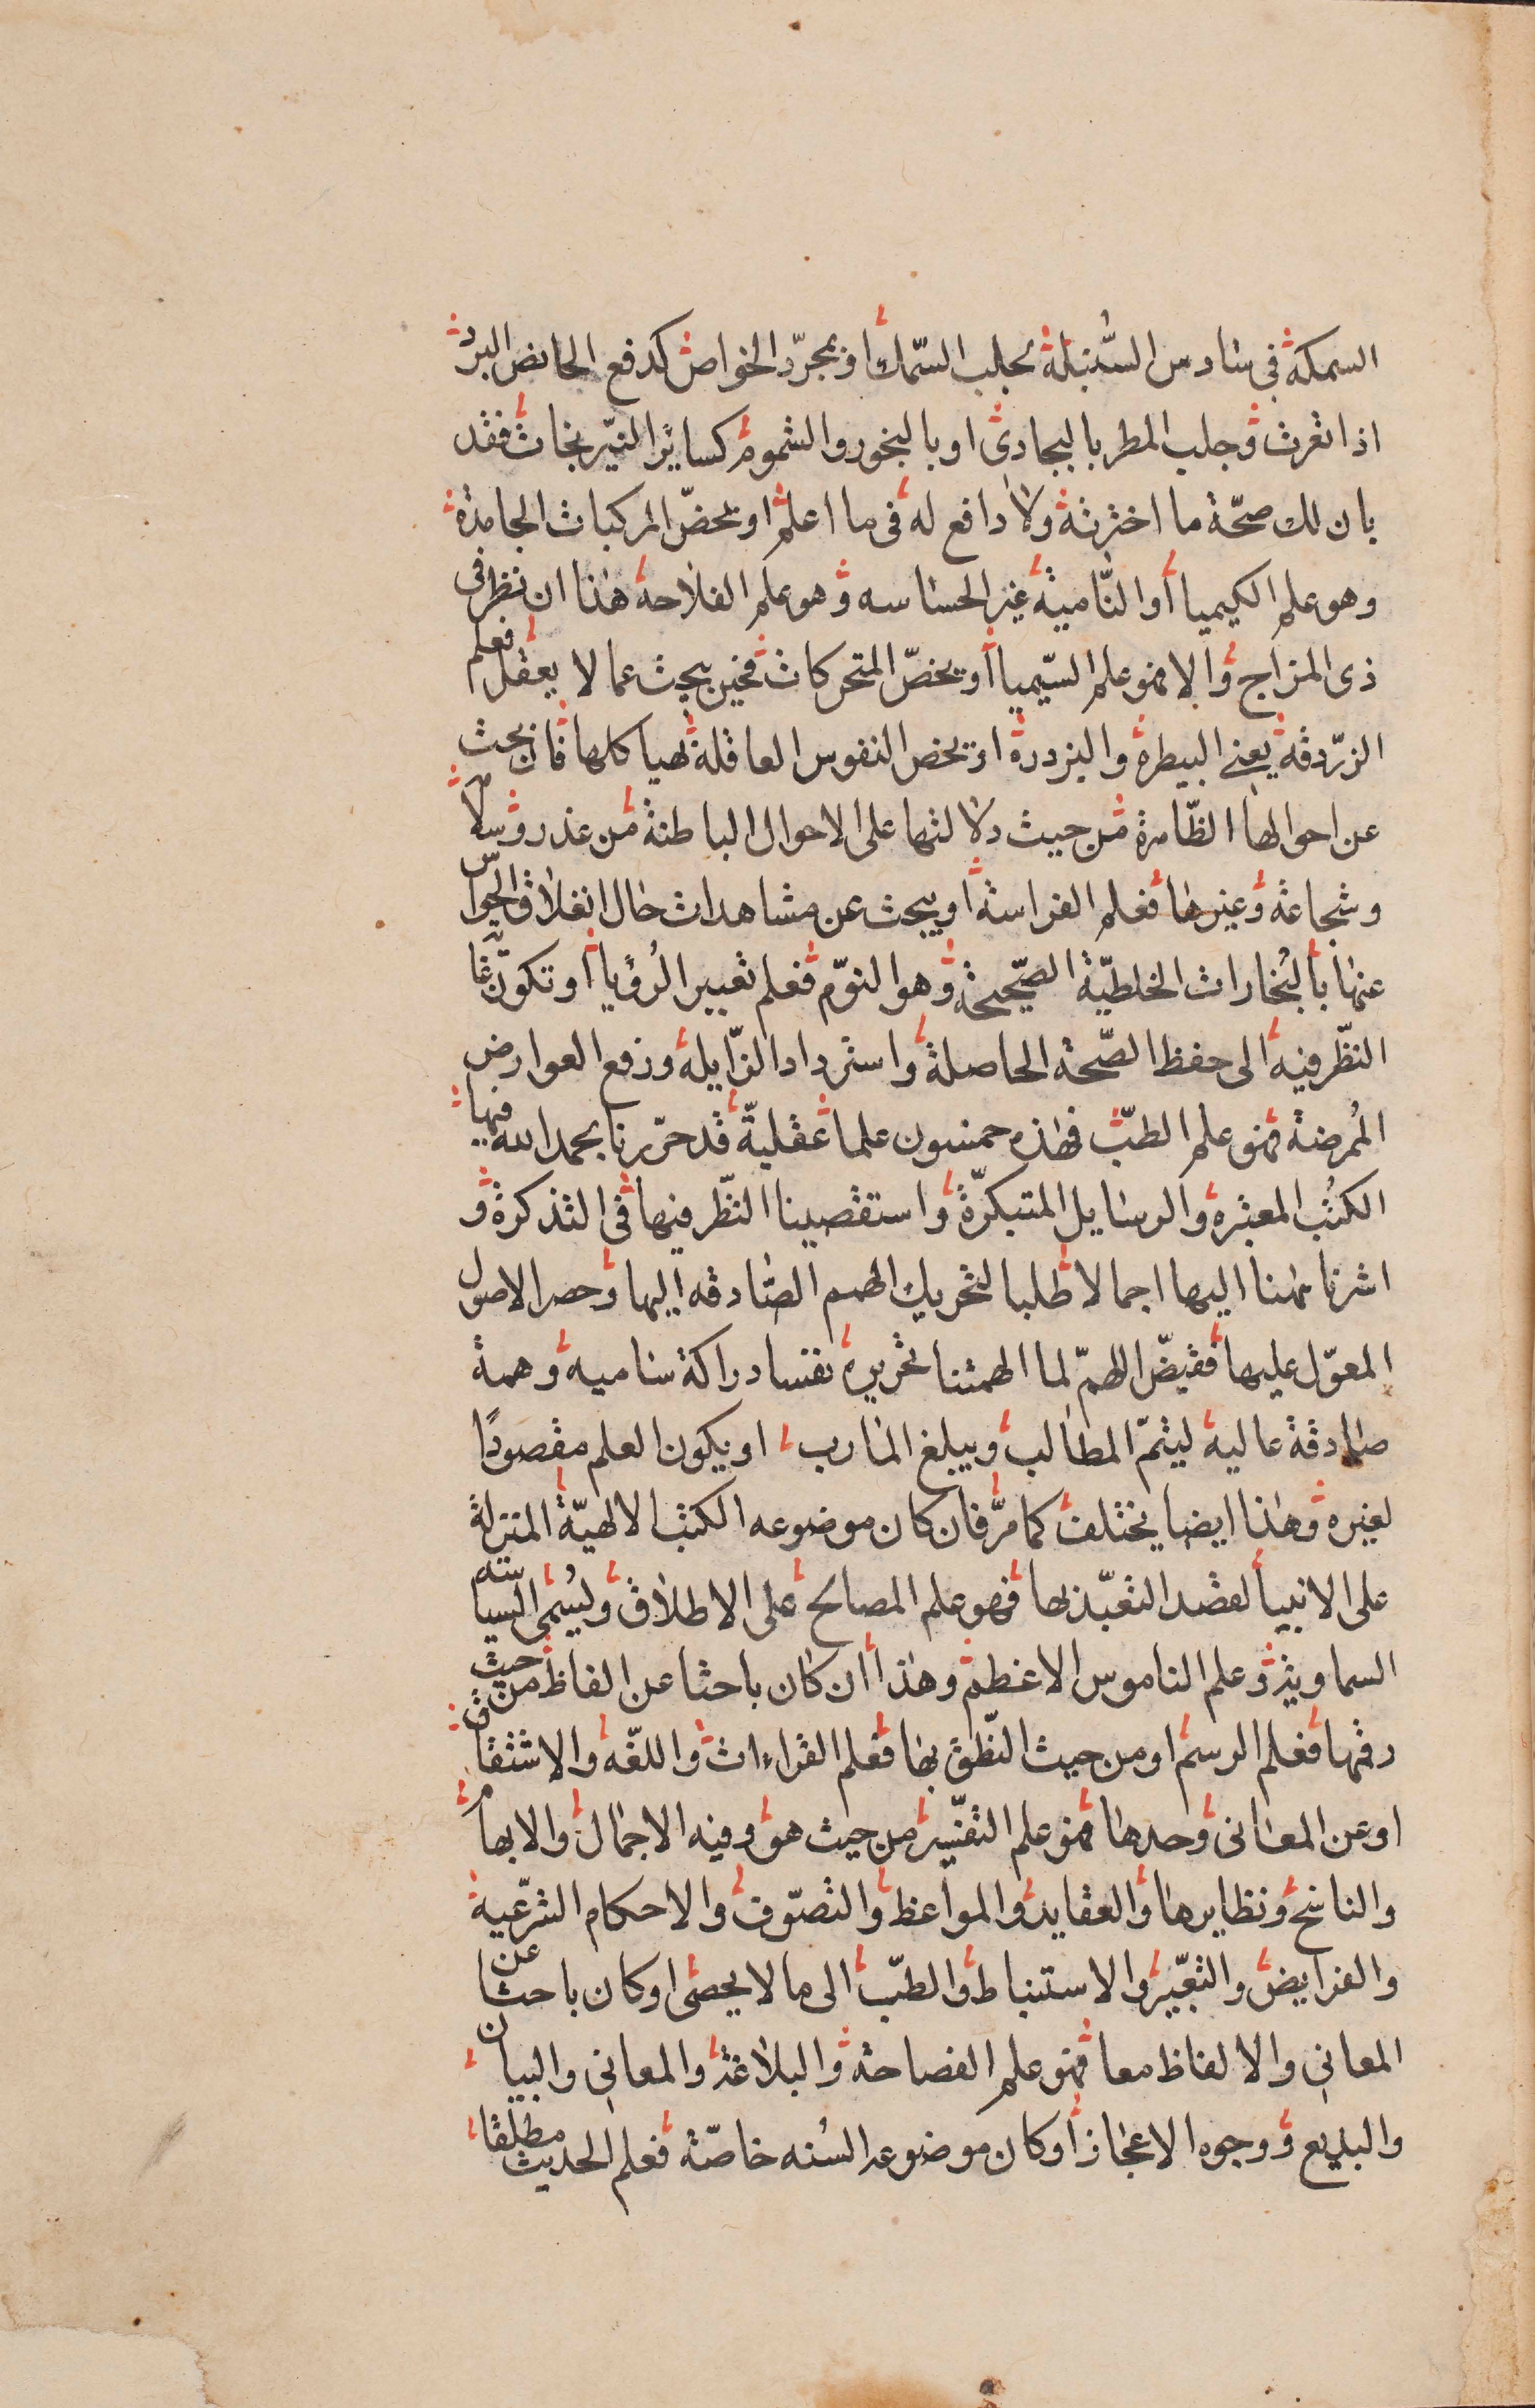 السمكة فى سادس السنبلة لجلب السّمك او بمجرّد الخواص كدفع الحائض البرد
اذا تعرت وجلب المطر بالبجادى او بالبخور والشموم كسائر النيّرنجات فقد
بان لك صحّة ما اخترته ولا دافع له فى ما اعلم او تخصّ المركبات الجامدة
وهو علم الكيميا أو النّامية غير الحساسه وهو علم الفلاحة هذا ان نظر فى
ذى المزاج والا فهو علم السّيميا أو يخصّ المتحركات فحين يبحث عما لا يعقل فعلم
الزّردقه يعنى البيطرة والبزدرة او يخص النفوس العاقلة بهياكلها فان بحث
عن احوالها الظّاهرة من حيث دلالتها على الاحوال الباطنة من غدر وسلام
وشجاعة وغيرها فعلم الفراسة او يبحث عن مشاهدات حال انغلاق الحواس
عنها بالبُخارات الخلطيّة الصّحيحة وهو النوّم فعلم تعبير الرُؤيا أو تكون غايت
النظّر فيه الى حفظ الصّحة الحاصلة واسترداد الزّايلة ودفع العوارض
المُمرضة فهو علم الطبّ فهذه خمسون علما عقليةّ قد حرّرنا بحمد الله فيها
الكتُب المعتبره والرسايل المبتكرّة واستقصينا النظّر فيها فى التذكرة و
اشرنا ههنا اليها اجمالا طلبا لتحريك الهمم الصّادقه اليها وحصر الاصول
المعوّل عليها فقيضّ اللهمّ لما الهمتنا تحريره نفسا دراكة ساميه وهمة
صادقة عاليه ليتمّ المطالب ويبلغ المارب او يكون العلم مقصودًا
لغيره وهذا ايضا يختلف كما مرّ فان كان موضوعه الكتب الالهيّة المنزلة
على الانبيا لقصد التعبّد بها فهو علم المصالح على الاطلاق ويُسَمى السياسته
السماوية وعلم الناموس الاعظم وهذا ان كان باحثا عن الفاظ من حيث
رقمها فعلم الرسم او من حيث النطّق بها فعلم القراءات واللغّه والاشتقاق
او عن المعانى وحدها فهو علم التفسّير من حيث هو وفيه الاجمال والابهام
والناسخ ونظايرها والعقايد والمواعظ والتصوّف والاحكام الشرّعية
والفرايض والتعبّير والاستنباط والطبّ الى ما لا يحصى او كان باحثا عن
المعانى والالفاظ معا فهو علم الفصاحة والبلاغة والمعانى والبيان
والبديع ووجوه الاعجاز أو كان موضوعه السُنه خاصّة فعلم الحديث مطلقا